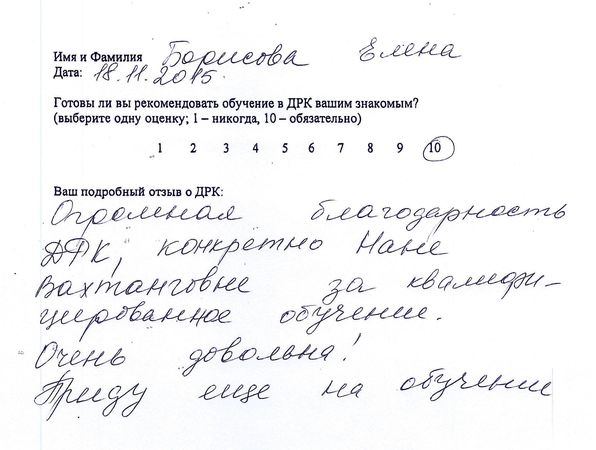 Имя и Фамилия Борисова Елена
Дата: 18.11.2015.
Готовы ли вы рекомендовать обучение в ДРК вашим знакомым?
(выберите одну оценку; 1 – никогда, 10 – обязательно)
1 2 3 4 5 6 7 8 9 10
Ваш подробный отзыв о ДРК:
Огромная благодарность
ДРК, конкретно Нане
Вахтанговне за квалифи-
цированное обучение.
Очень довольна!
Приду еще на обучение